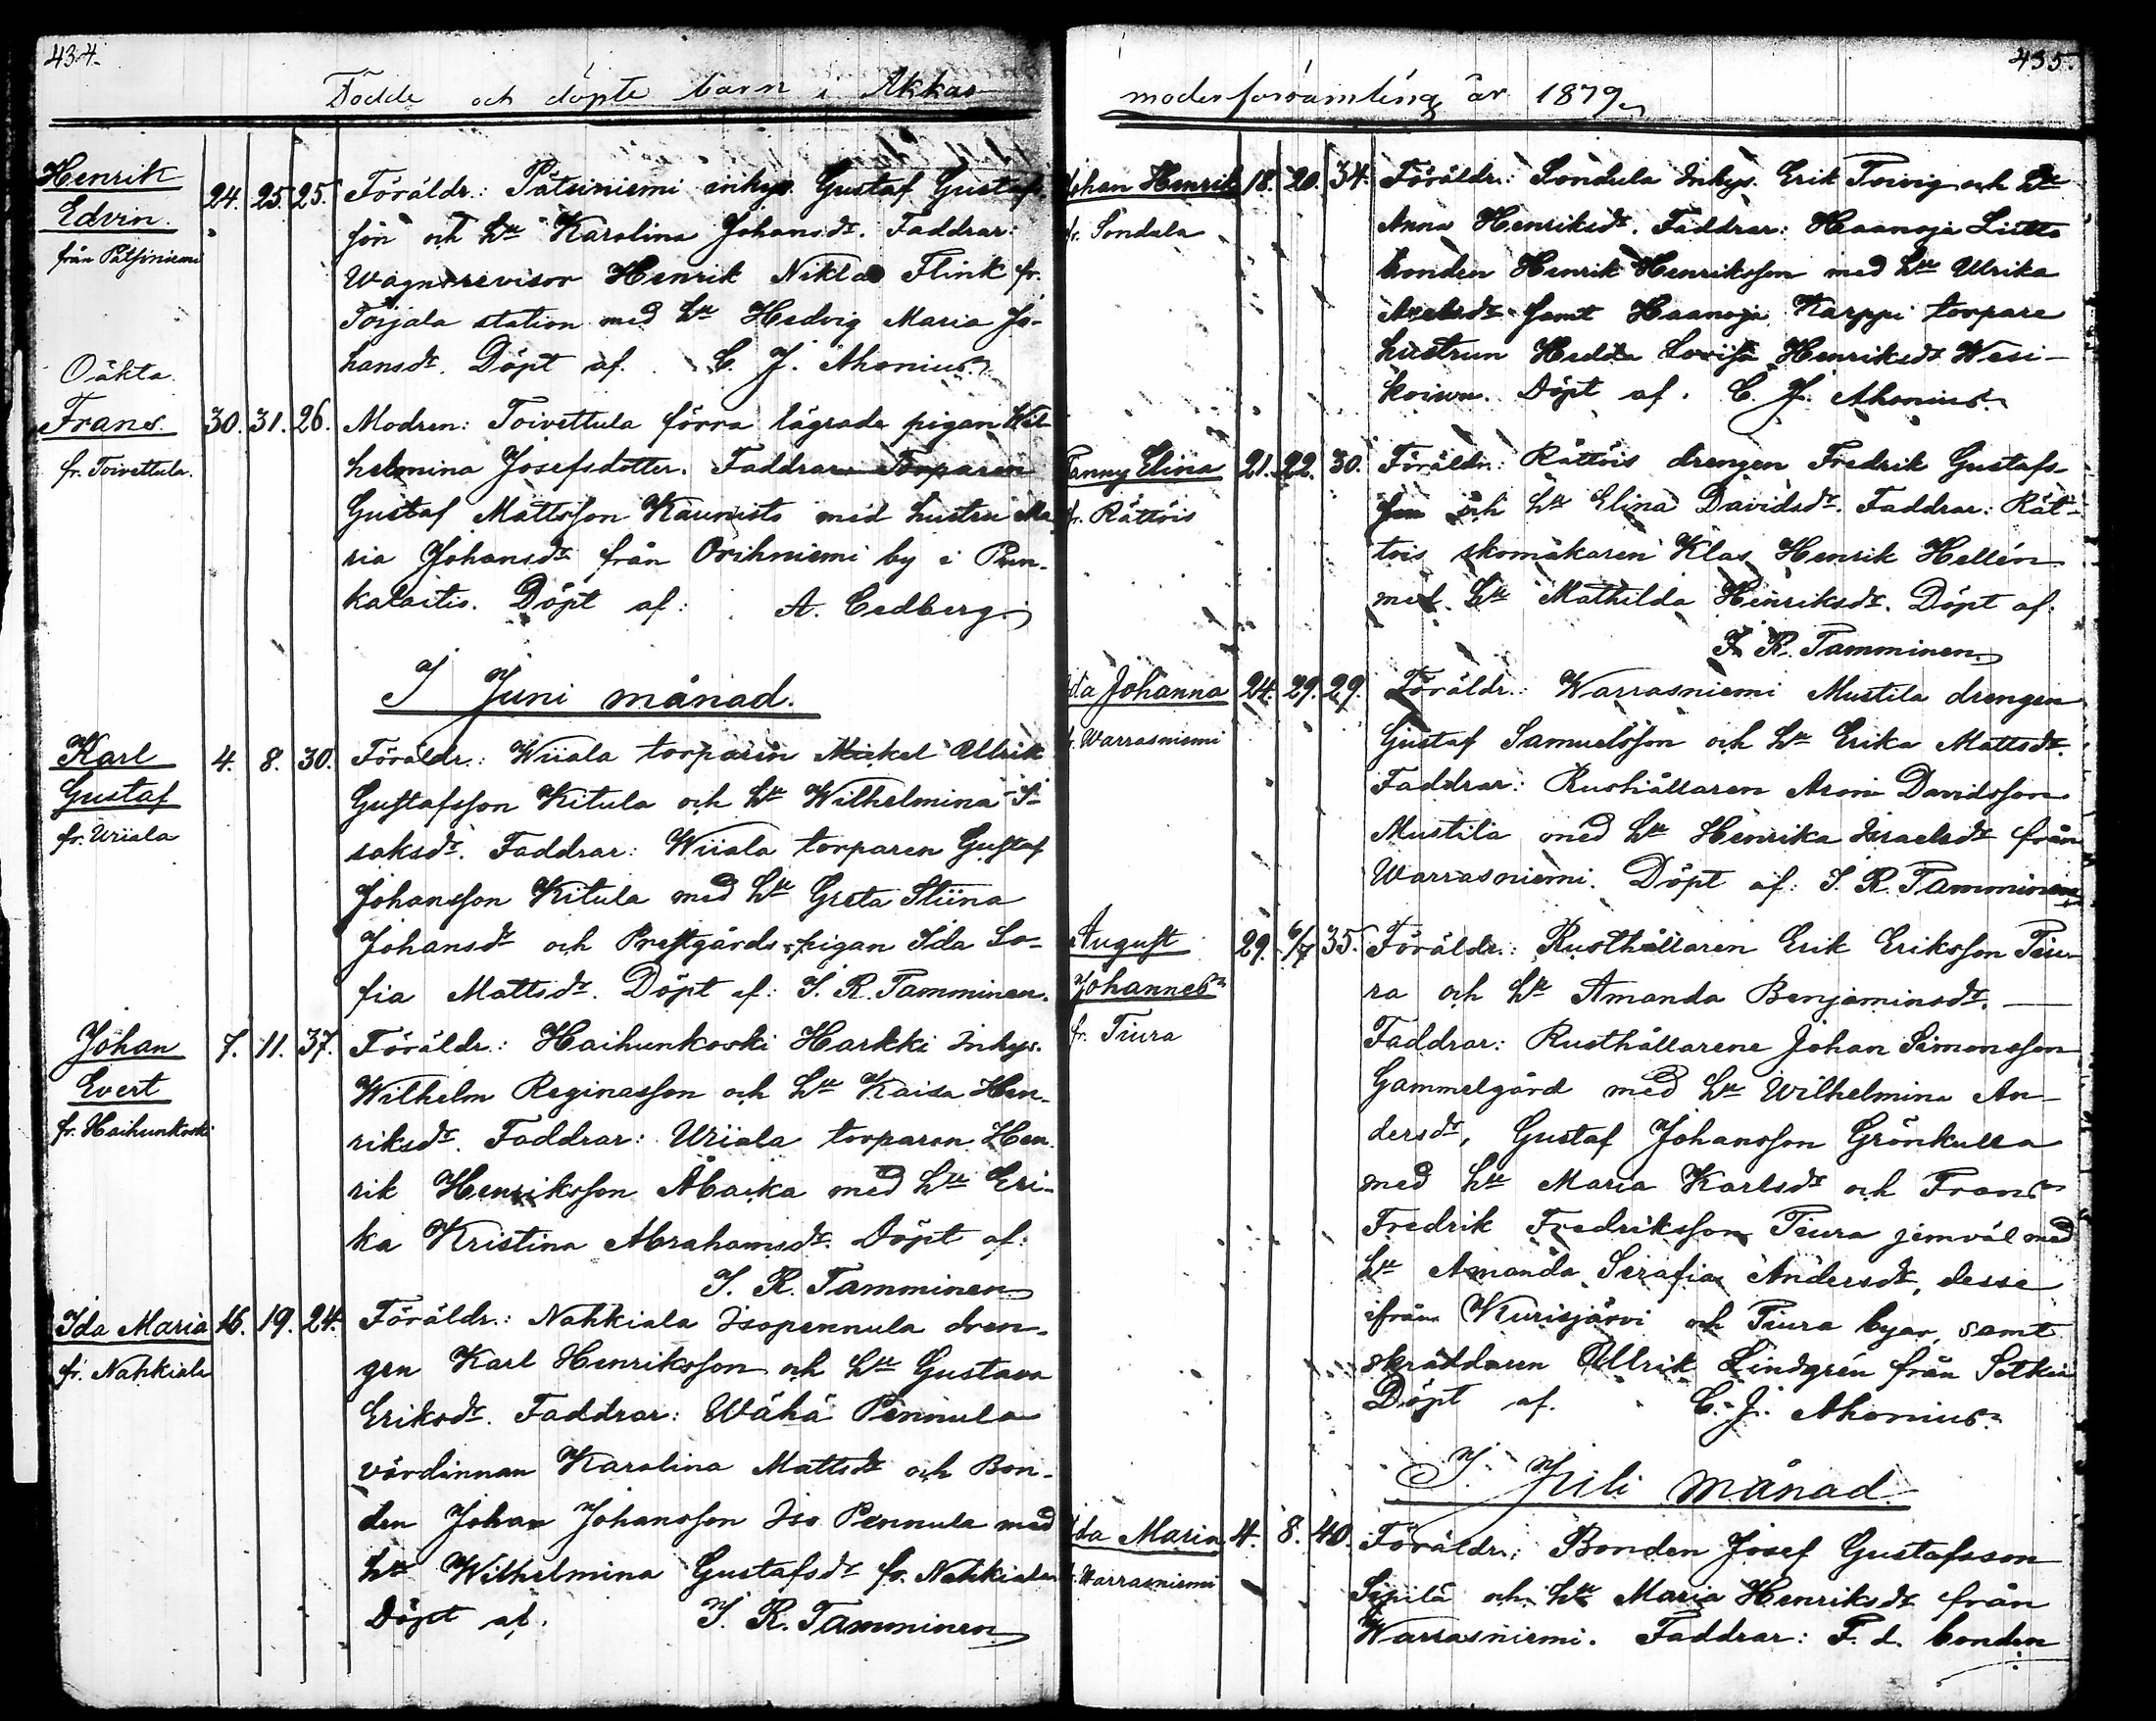 434.
Födde och döpte barn i Akkas
Henrik
Edvin.
från Pätsiniemi
24. 25. 25.
Föräldr.: Pätsiniemi inhys. Gustaf Gustafs-
son och hu Karolina Johansdr. Faddrar:
Wagnsrevisor Henrik Niklas Flink fr.
Toijala station med hu Hedvig Maria Jo-
hansdr. Döpt af. C. J. Ahonius.
Oäkta
Frans.
fr. Toivettula.
30. 31. 26.
Modren: Toivettula förra lägrade pigan Wil-
helmina Josefsdotter. Faddrar: Torparen
Gustaf Mattsson Kaunisto med hustru Ma-
ria Johansdr från Orihniemi by i Pun-
kalaitis. Döpt af: A. Cedberg.
I Juni månad.
Karl
Gustaf
fr. Uriala
4. 8. 30.
Föräldr.: Wiiala torparen Mickel Ullrik
Gustafsson Kitula och hu Wilhelmina I-
saksdr. Faddrar: Wiiala torparen Gustaf
Johansson Kitula med hu Greta Stiina
Johansdr och Prestgårds-pigan Ida So-
fia Mattsdr. Döpt af: I. R. Tamminen.
Johan
Evert
fr. Haihunkoski
7. 11. 37.
Föräldr.: Haihunkoski Harkki Inhys.
Wilhelm Reginasson och hu Kaisa Hen-
riksdr. Faddrar: Uriala torparen Hen-
rik Henriksson Åbacka med hu Eri-
ka Kristina Abrahamsdr. Döpt af:
I. R. Tamminen
Ida Maria
fr. Nahkiala
16. 19. 24.
Föräldr.: Nahkiala Isopennula dren-
gen Karl Henriksson och hu Gustava
Eriksdr. Faddrar: Wähä Pennula
värdinnan Karolina Mattsdr och Bon-
den Johan Johansson Iso Pennula med
hu Wilhelmina Gustafsdr fr. Nahkiala
Döpt af. I. R. Tamminen
435.
moderförsamling år 1879.
Johan Henrik
fr. Sondala
18. 20. 34.
Föräldr.: Sondula Inhys. Erik Toivig och hu
Anna Henriksdr. Faddrar: Haanoja
bonden Henrik Henriksson med hu Ulrika
Axelsdr samt Haanoja Karppi torpare
hustrun Hedda Lovisa Henriksdr Wesi-
Döpt af. C. J. Ahonius.
Fanny Elina
fr. Rättöis
21. 22. 30.
Föräldr.: Rättöis drengen Fredrik Gustafs-
son och hu Elina Davidsdr. Faddrar: Rät-
töis skomakaren Klas Henrik Hellén
med hu Mathilda Henriksdr. Döpt af.
I. R. Tamminen.
Ida Johanna
fr. Warrasniemi
24. 29. 29.
Föräldr.: Warrasniemi Mustila drengen
Gustaf Samuelsson och hu Erika Mattsdr.
Faddrar: Rushållaren Aron Davidsson
Mustila med hu Henrika Israelsdr från
Warrasniemi. Döpt af: I. R. Tamminen
August
Johannes
fr. Tiura
29. 6/7 35.
Föräldr.: Rusthållaren Erik Eriksson Tiu-
ra och hu Amanda Benjaminsdr.
Faddrar: Rusthållarene Johan Simonsson
Gammelgård med hu Wilhelmina An-
dersdr, Gustaf Johansson Grönkulla
med hu Maria Karlsdr och Frans
Fredrik Fredriksson Tiura jemväl med
hu Amanda Serafia Andersdr, desse
ifrån Kurisjärvi och Tiura byar, samt
skräddaren Ullrik Lindgrén från Sotkia
Döpt af. C. J. Ahonius.
I Juli månad.
Ida Maria
fr. Warrasniemi
4. 8. 40.
Föräldr.: Bonden Josef Gustafsson
Sipilä och hu Maria Henriksdr från
Warrasniemi. Faddrar: F. d. bonden